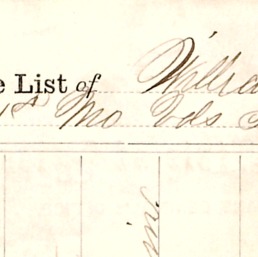 e List of Willia
1st Mo Vols
in.